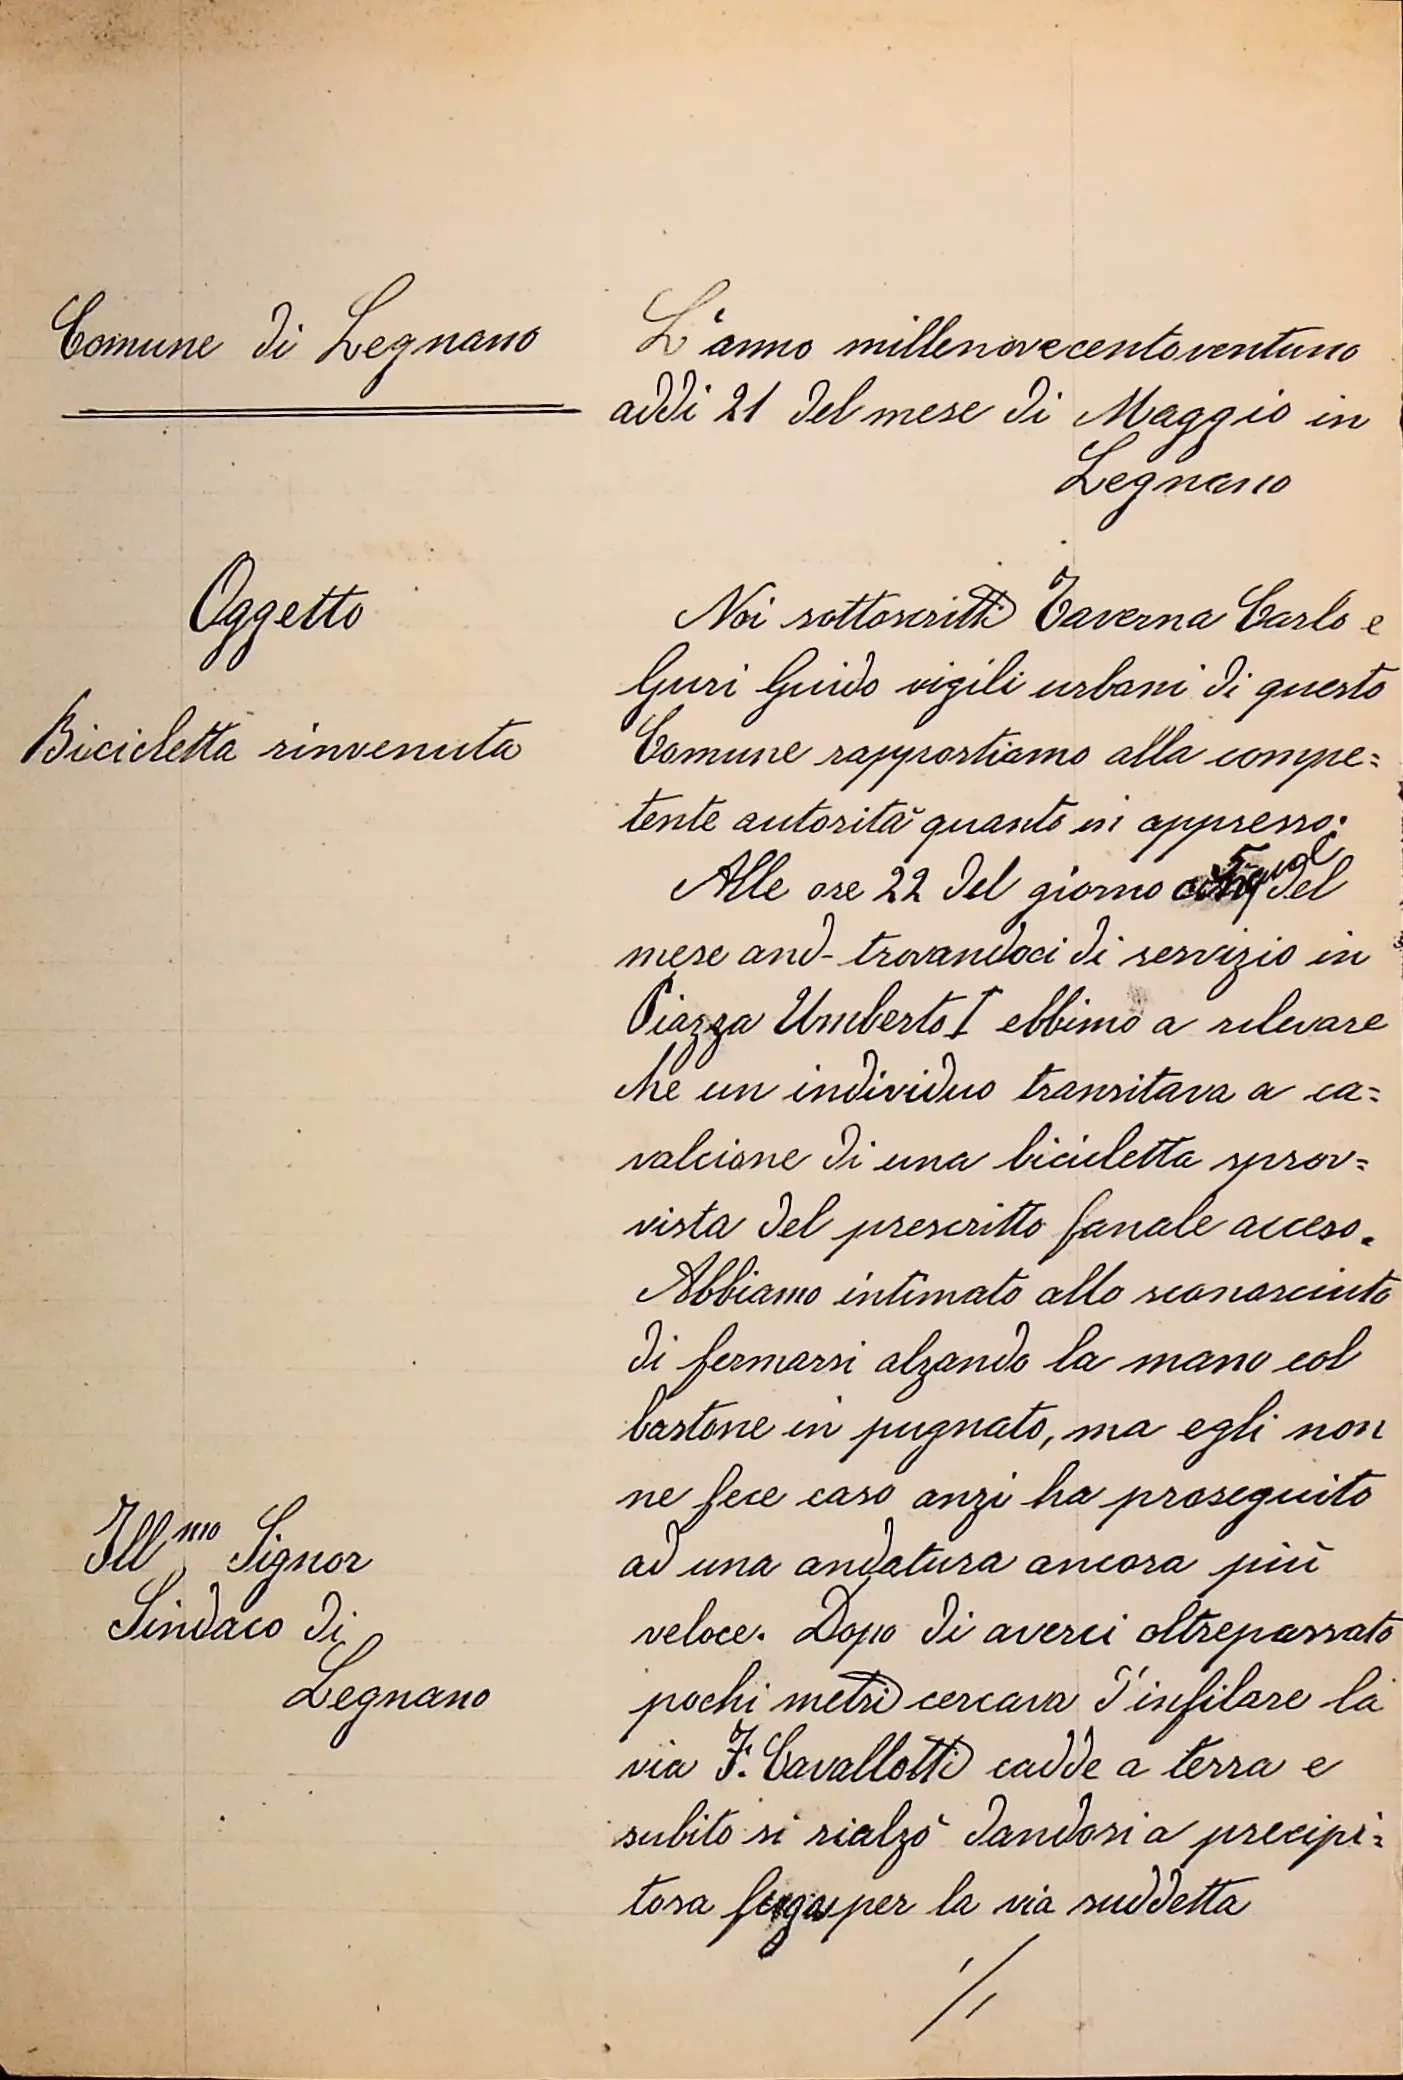 Comune di Legnano
Oggetto
Bicicletta rinvenuta
Ill.mo Signor
Sindaco di
Legnano
L'anno millenovecentoventuno
addi 21 del mese di Maggio in
Legnano
Noi sottoscritti Taverna Carlo e
Guri Guido vigili urbani di questo
Comune rapportiamo alla compe=
tente autorità quanto in appresso:
Alle ore 22 del giorno del
mese and- trovandoci di servizio in
Piazza Umberto I ebbimo a rilevare
che un individuo transitava a ca=
valcione di una bicicletta sprov=
vista del prescritto fanale acceso.
Abbiamo intimato allo sconosciuto
di fermarsi alzando la mano col
bastone in pugnato, ma egli non
ne fece caso anzi ha proseguito
ad una andatura ancora più
veloce. Dopo di averci oltrepassato
pochi metri cercava d'infilare la
via F. Cavallotti cadde a terra e
subito si rialzò dandosi a precipi=
tosa fuga per la via suddetta
./.